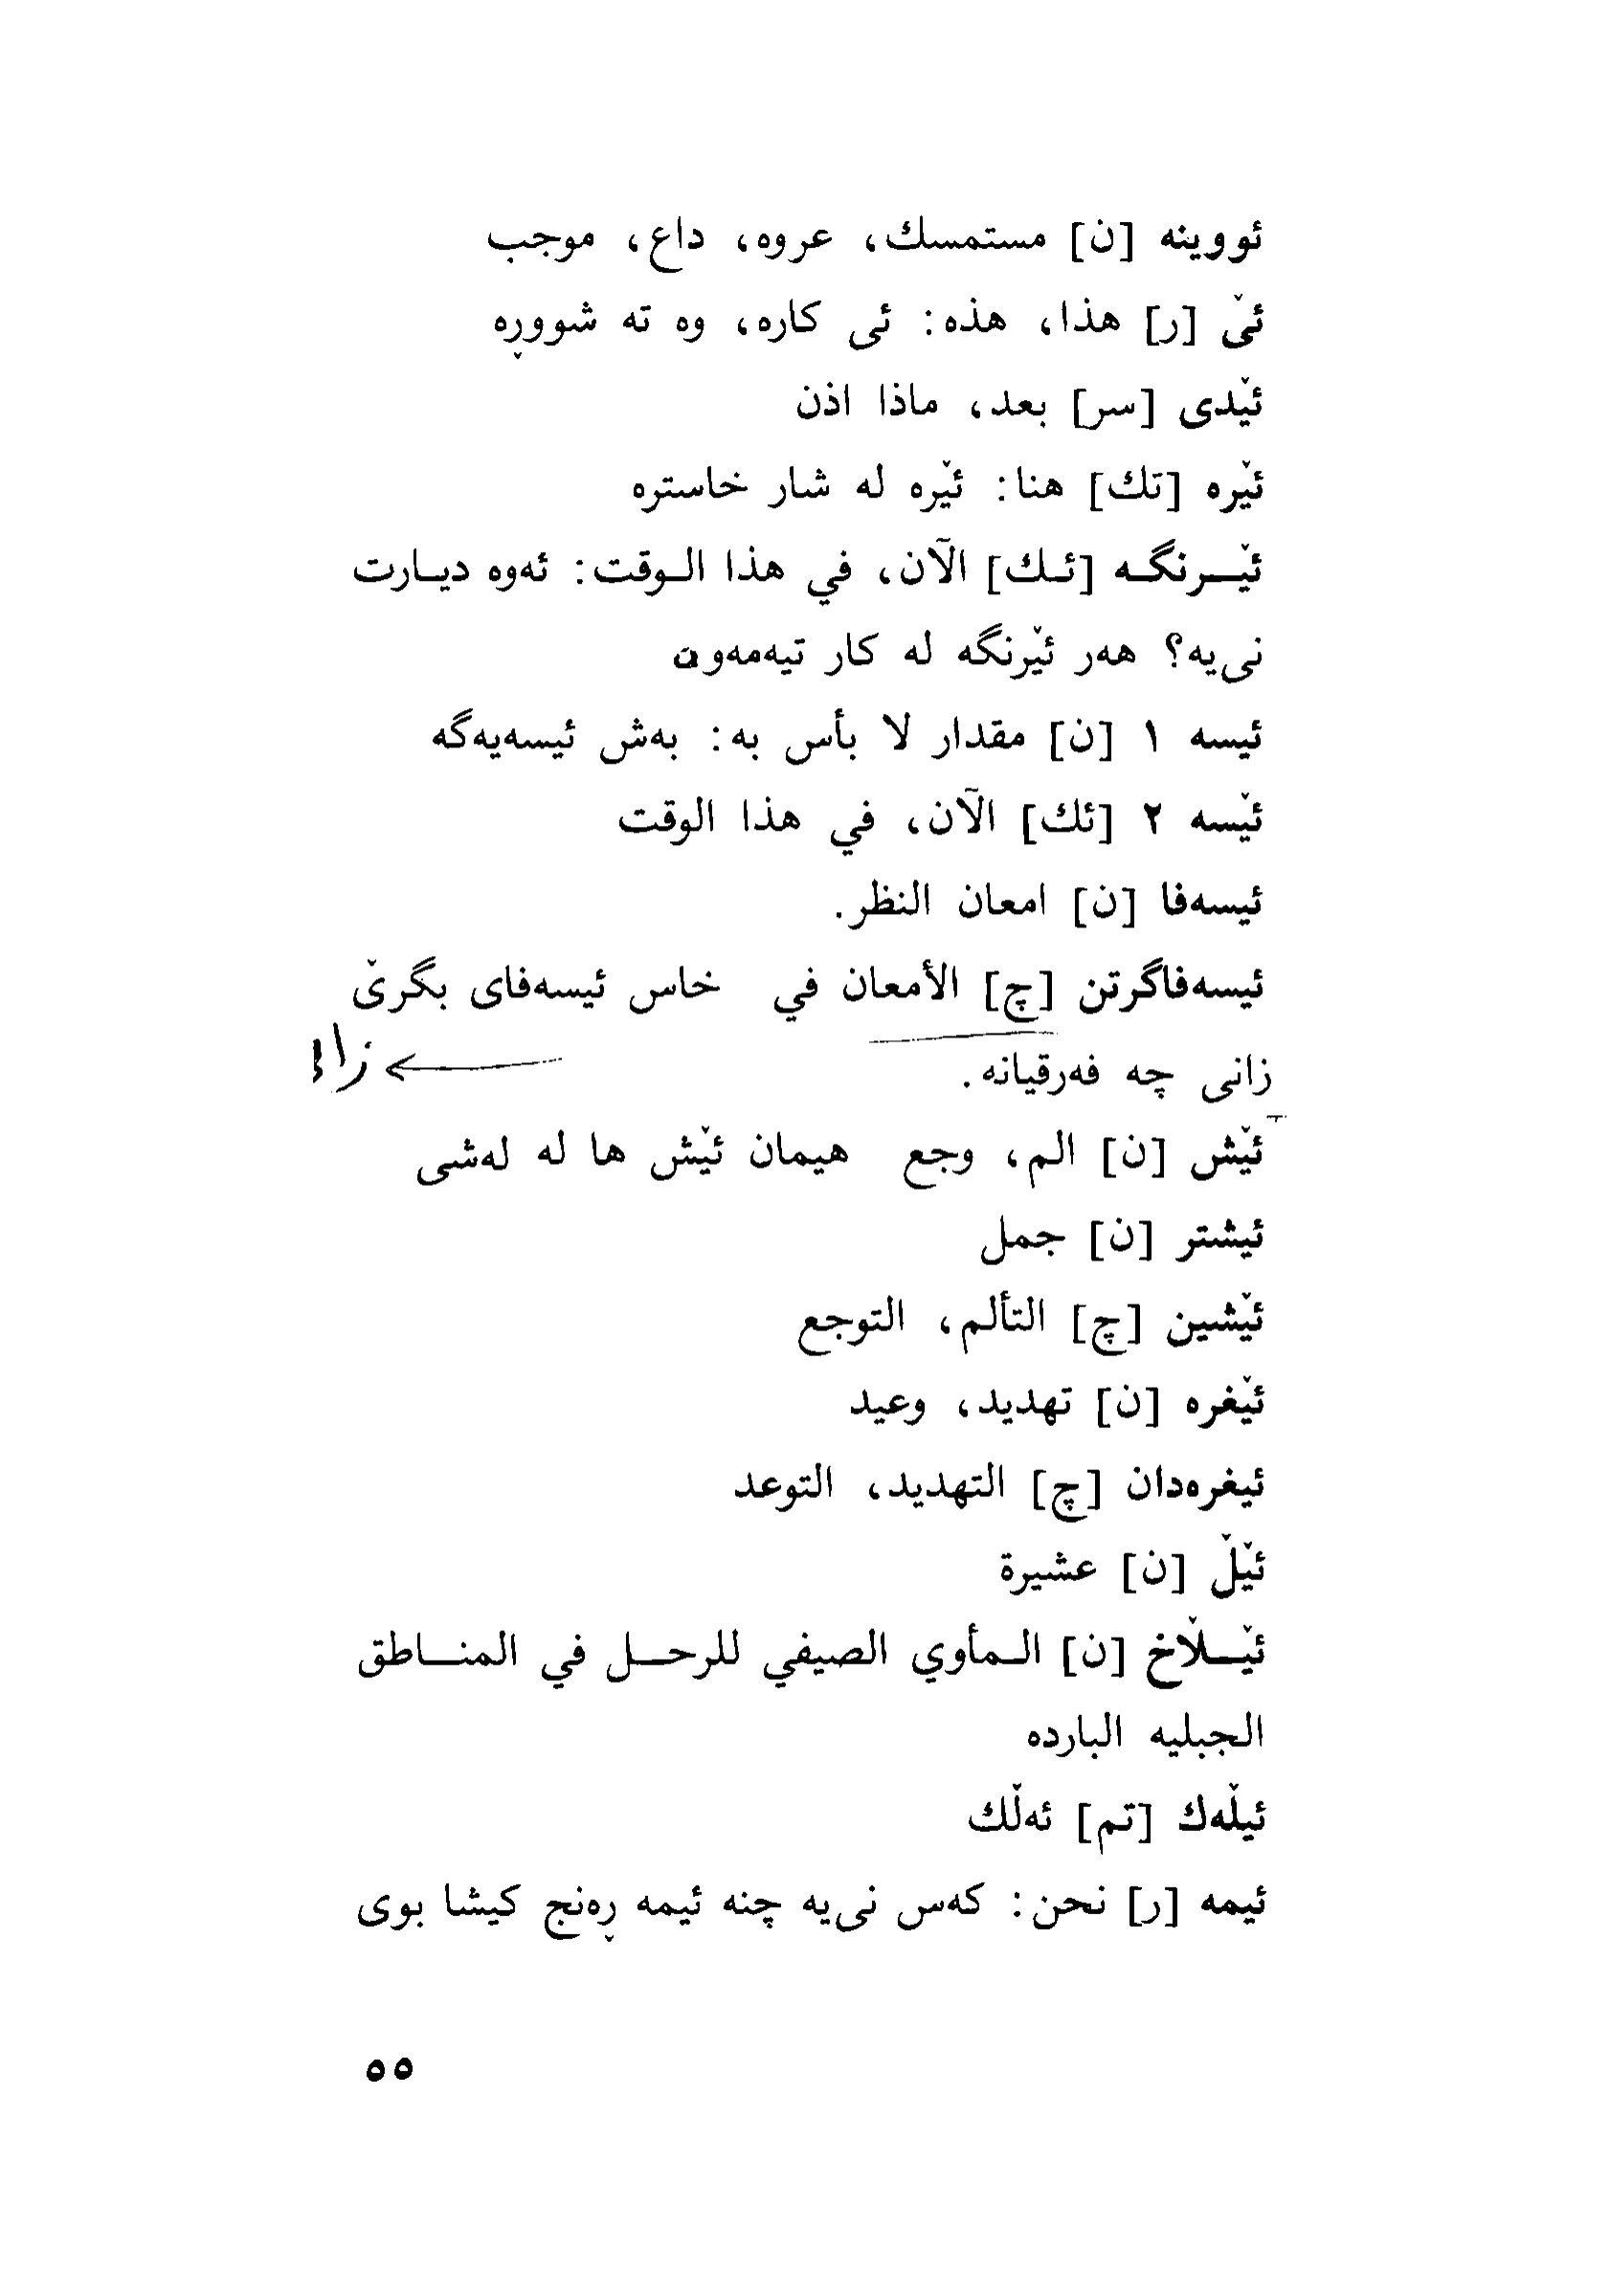 ئووینه [ن] مستمسك، عروه، داع، موجب
ئێ [ر] هذا، هذه: ئی کاره، وه ته شووڕه
ئێدی [سر] بعد، ماذا اذن
ئێره [تك] هنا: ئێره له شار خاستره
ئێـرنگـه [ئـك] الآن، في هذا الـوقت: ئەوه دیـارت
نی‌یه؟ هەر ئێرنگه له کار تیەمەون
ئیسه ١ [ن] مقدار لا بأس به: بەش ئیسەیەگه
ئێسه ٢ [ئك] الآن، في هذا الوقت
ئیسەفا [ن] امعان النظر.
ئیسەفاگرتن [چ] الأمعان في خاس ئیسەفای بگرێ
زانی چه فەرقیانه.
ئێش [ن] الم، وجع هیمان ئێش ها له لەشی
ئیشتر [ن] جمل
ئێشین [چ] التألم، التوجع
ئێغره [ن] تهديد، وعيد
ئیغرەدان [چ] التهديد، التوعد
ئێڵ [ن] عشيرة
ئێـڵاخ [ن] الـمأوي الصيفي للرحـل في المنـاطق
الجبليه البارده
ئیڵەك [تم] ئەڵك
ئیمه [ر] نحن: کەس نی‌یه چنه ئیمه ڕەنج کیشا بوی
٥٥